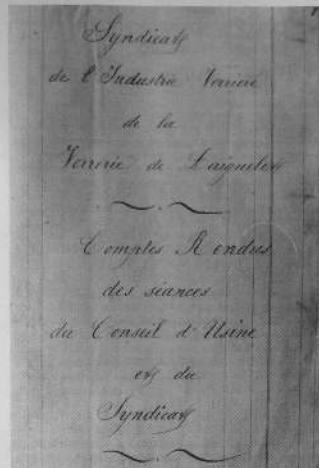 Syndicat
de l'Industrie Verrière
de la
Verrerie de Laignelet
Comptes Rendus
des séances
du Conseil d'Usine
et du
Syndicat